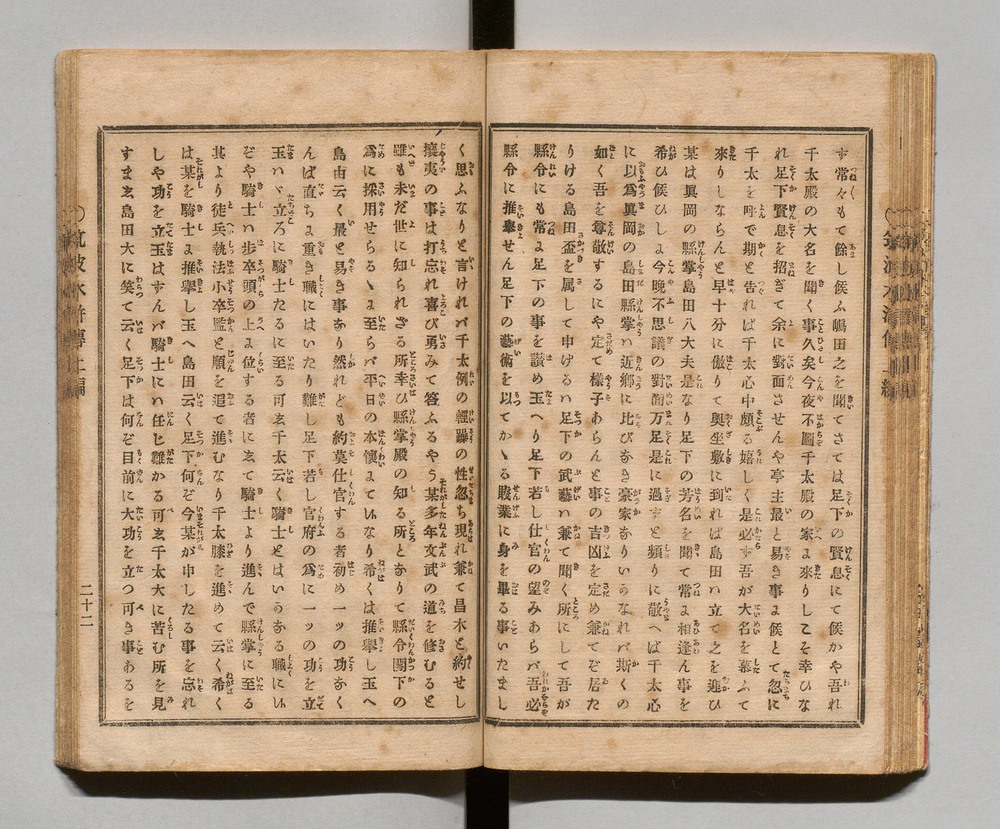 す常々もて餘し候ふ嶋田之を聞てさては足下の賢息にて候かや吾れ
千太殿の大名を聞く事久矣今夜不圖千太殿の家ま來りしこそ幸ひな
れ足下賢息を招ぎて余に對面させんや亭主最と易き事ま候とて忽に
千太を呼で期と告れば千太心中頗る嬉しく是必ず吾が大名を慕ふて
來りしならんと早十分に傲りて奥坐敷に到れば島田ハ立て之を迎ひ
某は眞岡の縣掌島田八大夫是なり足下の芳名を聞て常ま相逢ん事を
希ひ候ひしま今晩不思議の對面万足是に過ずと頻りに敬へば千太心
に以爲眞岡の島田縣掌ハ近鄉に比びなき豪家なりいうなれバ斯くの
如く吾を尊敬するにや定て樣子あらんと事の吉凶を定め兼てぞ居た
りける島田盃を属して申けるハ足下の武藝ハ兼て聞く所にして吾が
縣令にも常ま足下の事を讃め玉へり足下若し仕官の望みあらバ吾必
縣令に推擧せん足下の藝術を以てかゝる賎業に身を畢る事いたまし
く思ふなりと言けれバ千太例の輕躁の性忽ち現れ兼て昌木と約せし
攘夷の事は打忘れ喜び勇みて答ふるやう某多年文武の道を修むると
雖も未だ世に知られざる所幸ひ縣掌殿の知る所となりて縣令閣下の
爲に採用せらるゝま至らバ平日の本懷まてハなり希くは推擧し玉へ
島田云く最と易き事なり然れども約莫仕官する者初め一ッの功なく
んば直ちま重き職にはいたり難し足下若し官府の爲に一ッの功を立
玉ハヾ立ろに騎士たるに至る可ゑ千太云く騎士とはいうなる職にハ
ぞや騎士ハ歩卒頭の上ま位する者にゑて騎士より進んで縣掌に至る
其より徒兵執法小卒監と順を追て進むなり千太膝を進めて云く希く
は某を騎士ま推擧し玉へ島田云く足下何ぞ今某が申したる事を忘れ
しや功を立玉はずんバ騎士にハ任じ難かる可ゑ千太大に苦む所を見
すまゑ島田大に笑て云く足下は何ぞ目前に大功を立つ可き事あるを
二十二